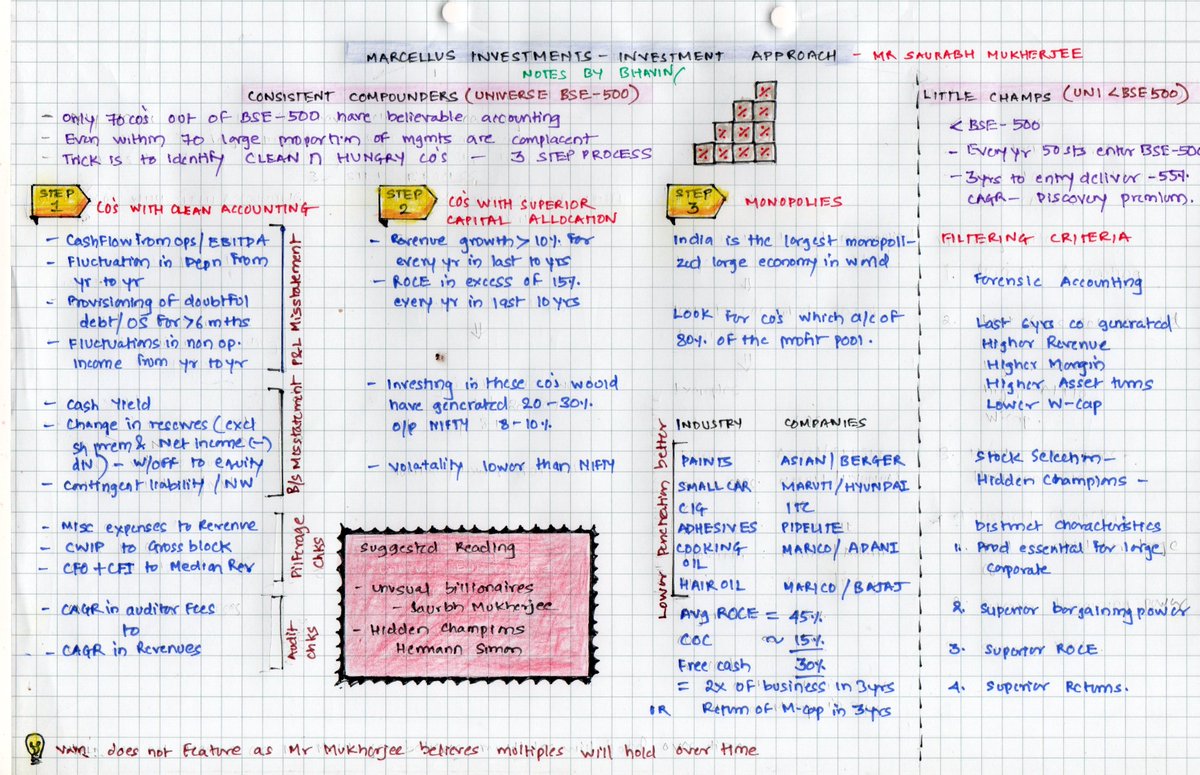 MARCELLUS INVESTMENTS - INVESTMENT APPROACH - MR SAURABH MUKHERJEE
NOTES BY BHAVIN
CONSISTENT COMPOUNDERS (UNIVERSE BSE-500)
- Only 70 co's out of BSE-500 have believable accounting
- Even within 70 large proportion of mgmts are complacent
- Trick is to identify CLEAN n HUNGRY co's - 3 STEP PROCESS
% 
% %
% % %
% % % %
STEP 1
CO'S WITH CLEAN ACCOUNTING
- Cashflow from ops/EBITDA
- Fluctuation in Depn from
yr to yr
- Provisioning of doubtful
debt/OS for >6 mths
- Fluctuations in non op.
income from yr to yr
P&L Misstatement
- Cash yield
- Change in reserves (excl
sh prem & Net Income (-)
dN) - w/off to equity
- Contingent liability / NW
B/S Misstatement
- Misc expenses to Revenue
- CWIP to Gross block
- CFO + CFI to Median Rev
Pilferage chks
- CAGR in auditor fees
to
- CAGR in Revenues
Audit chks
STEP 2
CO'S WITH SUPERIOR
CAPITAL ALLOCATION
- Revenue growth > 10% for
every yr in last 10 yrs
- ROCE in excess of 15%
every yr in last 10 yrs
- Investing in these co's would
have generated 20-30%
o/p NIFTY 8-10%
- Volatality lower than NIFTY
Suggested Reading
- Unusual billionaires
- Saurbh Mukherjee
- Hidden Champions
Hermann Simon
STEP 3
MONOPOLIES
India is the largest monopoli-
zed large economy in world
Look for co's which a/c of
80% of the profit pool.
INDUSTRY COMPANIES
PAINTS ASIAN/BERGER
SMALL CAR MARUTI/HYUNDAI
CIG ITC
ADHESIVES PIDELITE
COOKING OIL MARICO/ADANI
HAIR OIL MARICO/BAJAJ
Lower Penetration better
Avg ROCE = 45%
COC ~ 15%
Free cash 30%
= 2x of business in 3yrs
OR Return of M-cap in 3yrs
LITTLE CHAMPS (UNI < BSE500)
< BSE-500
- Every yr 50 sts enter BSE-500
- 3yrs to entry deliver -55%
CAGR - Discovery premium.
FILTERING CRITERIA
Forensic Accounting
Last 6yrs co generated
Higher Revenue
Higher Margin
Higher Asset turns
Lower W-cap
Stock Selection -
Hidden Champions -
Distinct characteristics
1. Prod essential for large
corporate
2. Superior bargaining power
3. Superior ROCE
4. Superior Returns.
does not feature as Mr Mukherjee believes multiples will hold over time